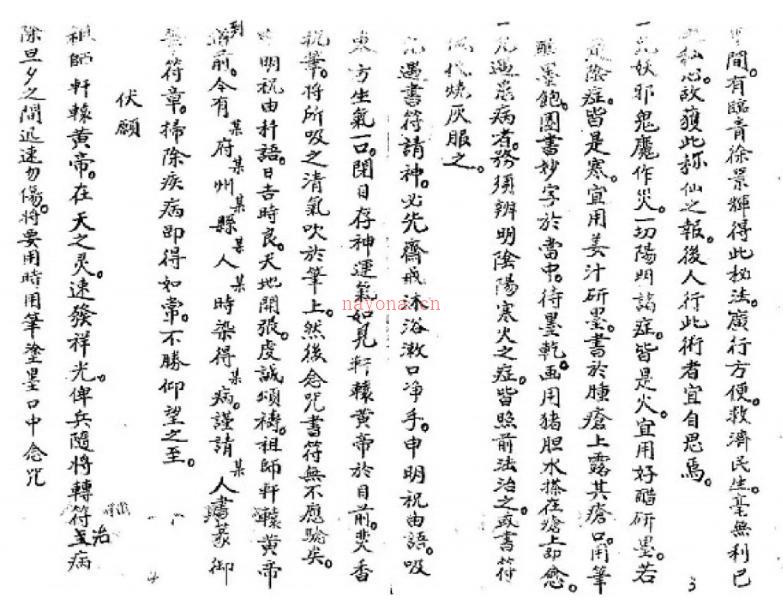 間。有臨青徐景輝得此秘法。廣行方便。救濟民生。毫無利已
私心。故獲此称仙之報。後人行此術者宜自思焉。
一凡妖邪鬼魔作災。一切陽明諸症。皆是火。宜用好醋研墨。若
是陰症。皆是寒。宜用姜汁研墨。書於腫瘡上露其瘡口。用筆
醮墨飽。圈書妙字於當中。待墨乾。画用猪胆水搽在瘡上即愈。
一凡遇患病者。務須辨明陰陽寒火之症。皆照前法治之。或書符
代燒灰服之。
凡遇書符請神。必先齋戒沐浴漱口净手。申明祝由語。吸
東方生氣一口。閉目存神運氣如見軒轅黄帝於目前。焚香
祝筆。將所吸之清氣吹於筆上。然後念咒書符無不應騐矣。
明祝由科語。日吉時良。天地開張。虔誠頌禱。祖師軒轅黄帝
到前。今有某府某州某縣某人某時染得某病。謹請某人書篆御
符章。掃除疾病即得如常。不勝仰望之至。
伏願
祖師軒轅黄帝。在天之灵。速發祥光。俾兵隨將轉符至病
治
除旦夕之間迅速勿傷。將要用時用筆塗墨口中念咒
3
4
nayona.cn